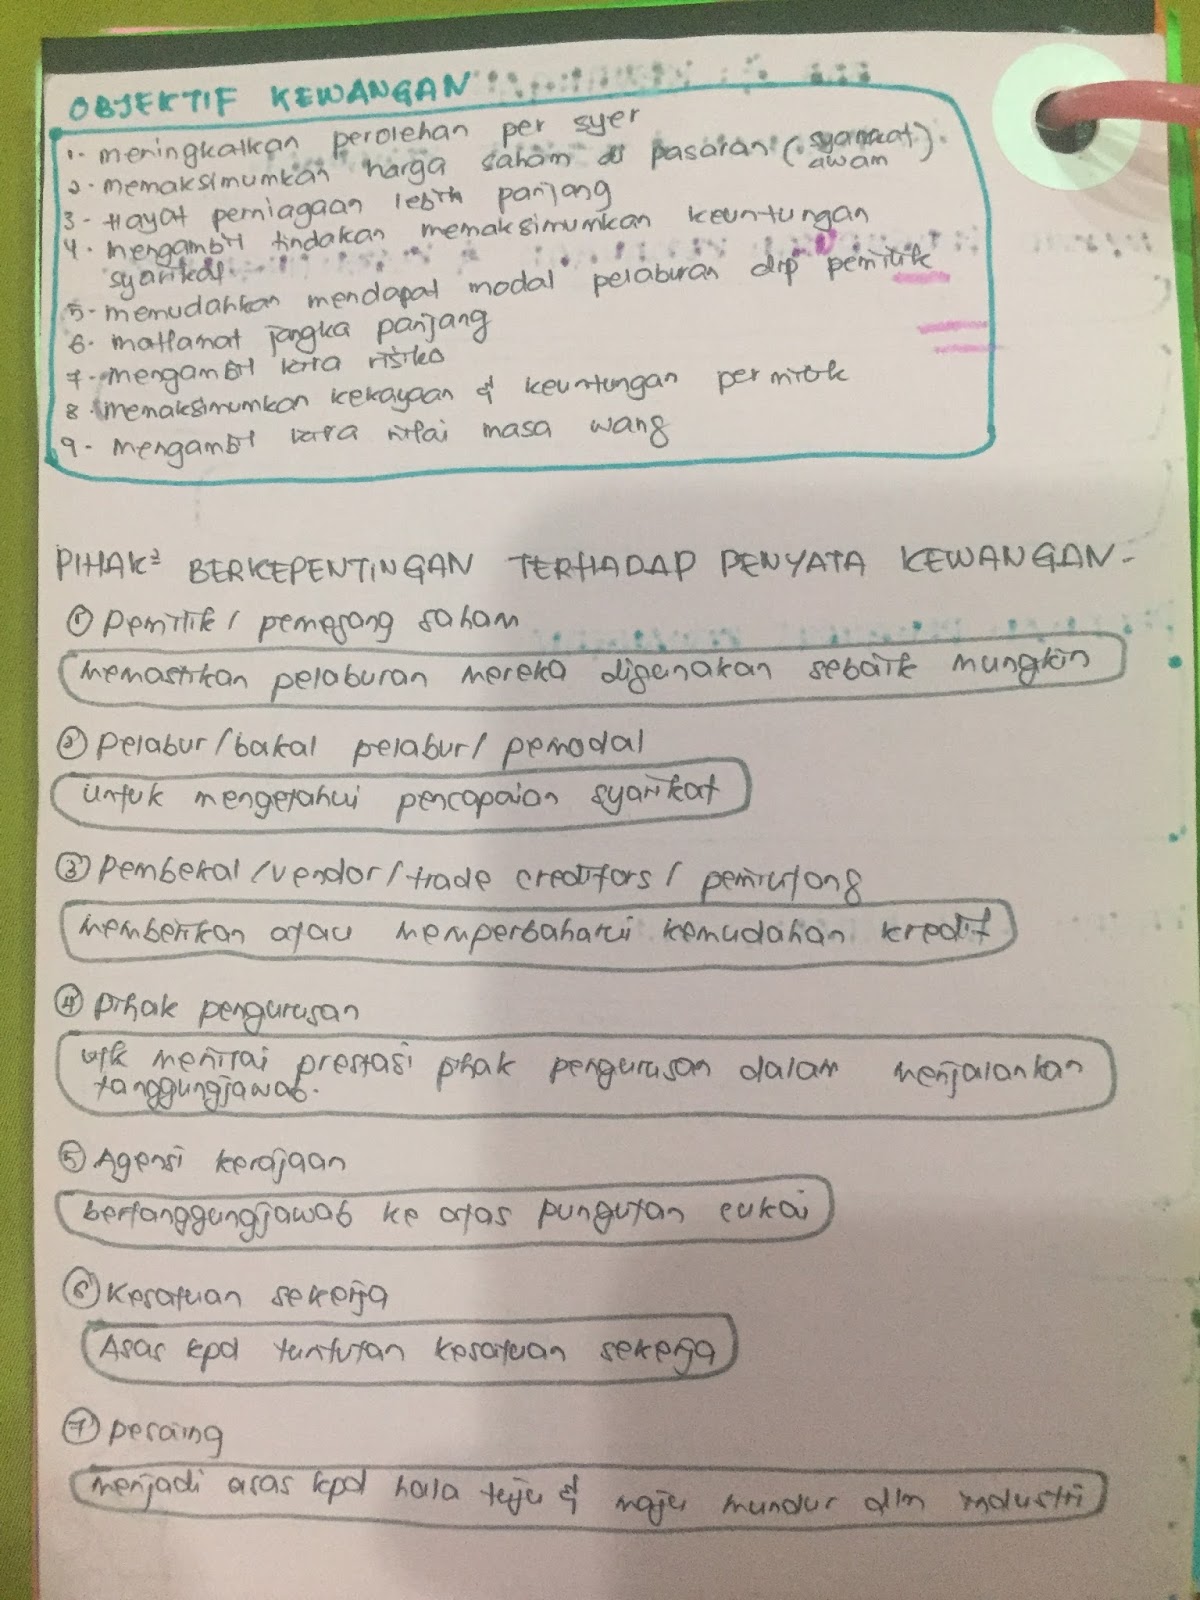 OBJEKTIF KEWANGAN
1- meningkatkan perolehan per syer
2- memaksimumkan harga saham di pasaran (syarikat awam).
3- Hayat perniagaan lebih panjang
4- mengambil tindakan memaksimumkan keuntungan
syarikat.
5- memudahkan mendapat modal pelaburan drp pemilik
6- matlamat jangka panjang
7- mengambil kira risiko
8- memaksimumkan kekayaan & keuntungan pemilik
9- mengambil kira nilai masa wang
PIHAK² BERKEPENTINGAN TERHADAP PENYATA KEWANGAN-
① Pemilik / pemegang saham
memastikan pelaburan mereka digunakan sebaik mungkin
② Pelabur/bakal pelabur/ pemodal
untuk mengetahui pencapaian syarikat
③ Pembekal/vendor/trade creditors/ pemiutang
memberikan atau memperbaharui kemudahan kredit
④ Pihak pengurusan
utk menilai prestasi pihak pengurusan dalam menjalankan
tanggungjawab.
⑤ Agensi kerajaan
bertanggungjawab ke atas pungutan cukai
⑥ Kesatuan sekerja
Asas kpd tuntutan kesatuan sekerja
⑦ pesaing
menjadi asas kpd hala tuju & maju mundur dlm industri